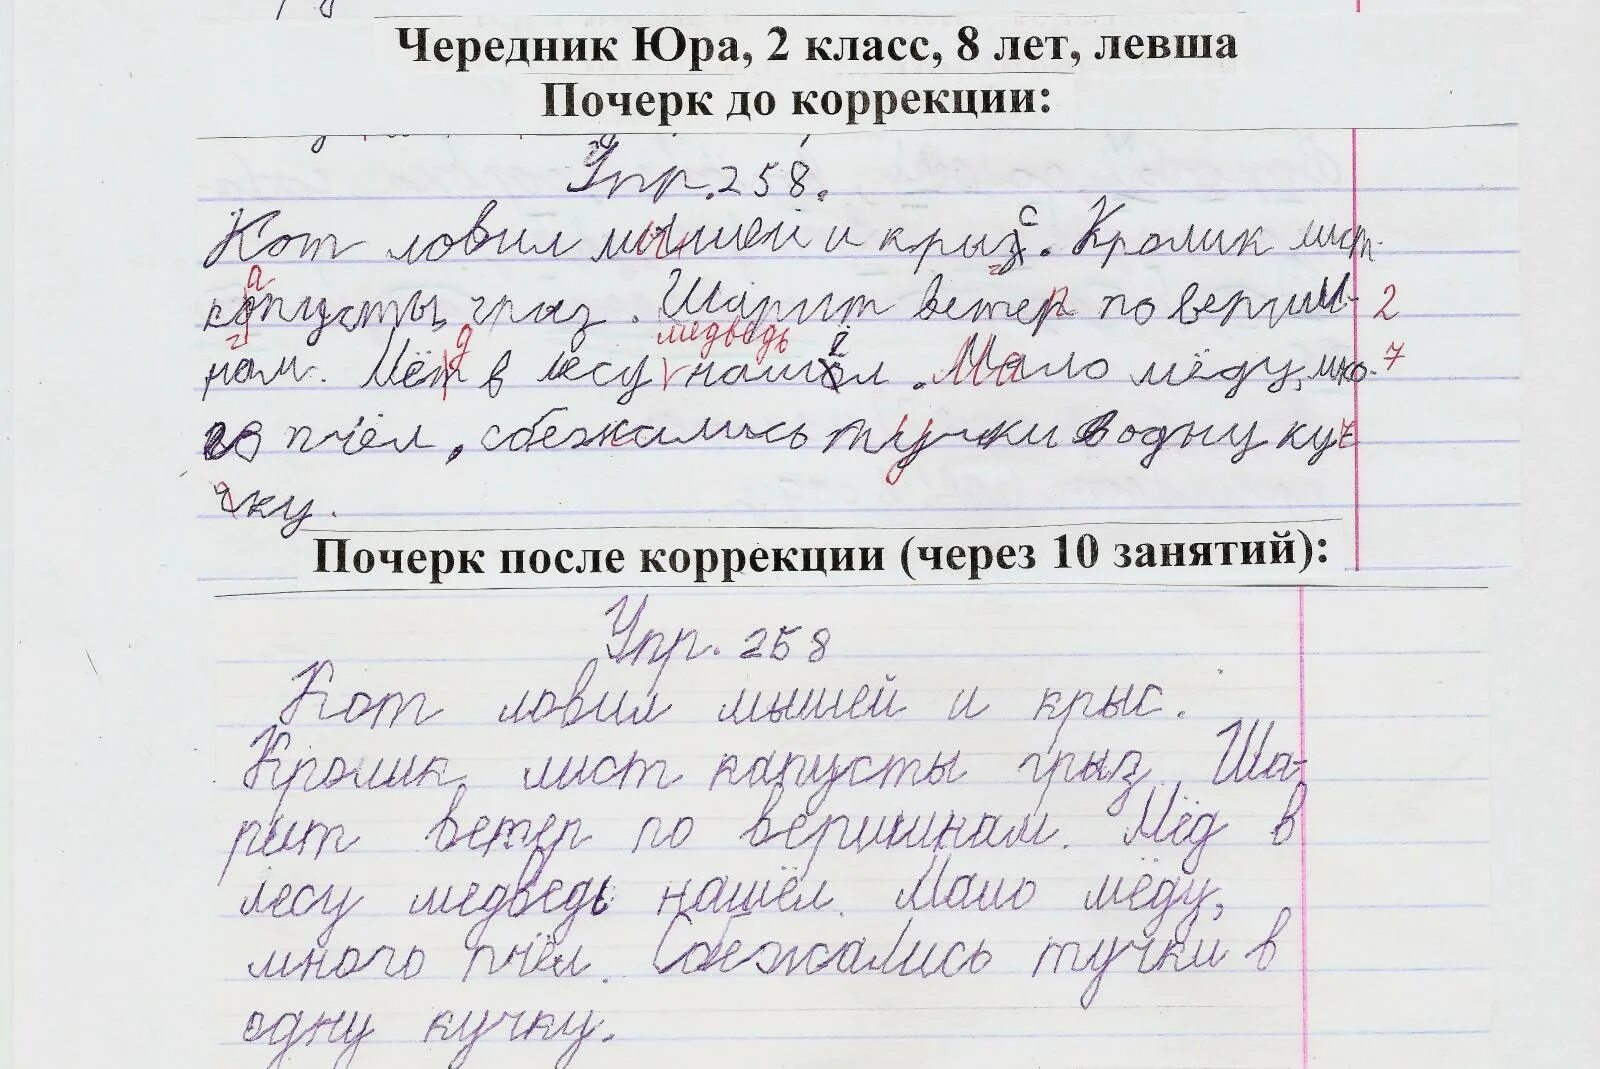 Чередник Юра, 2 класс, 8 лет, левша
Почерк до коррекции:
Упр. 258.
Кот ловил мышей и крыз с. Кролик лист
копусты, грыз. Шарит ветер по верши- 2
а
нам. Мёт д в лесу медведь нашёл. Мало мёду, мно- 7
го пчёл, сбежались тучки в одну куч
чку.
Почерк после коррекции (через 10 занятий):
Упр. 258
Кот ловил мышей и крыс.
Кролик лист капусты грыз. Ша-
рит ветер по вершинам. Мёд в
лесу медведь нашёл. Мало мёду,
много пчёл. Сбежались тучки в
одну кучку.